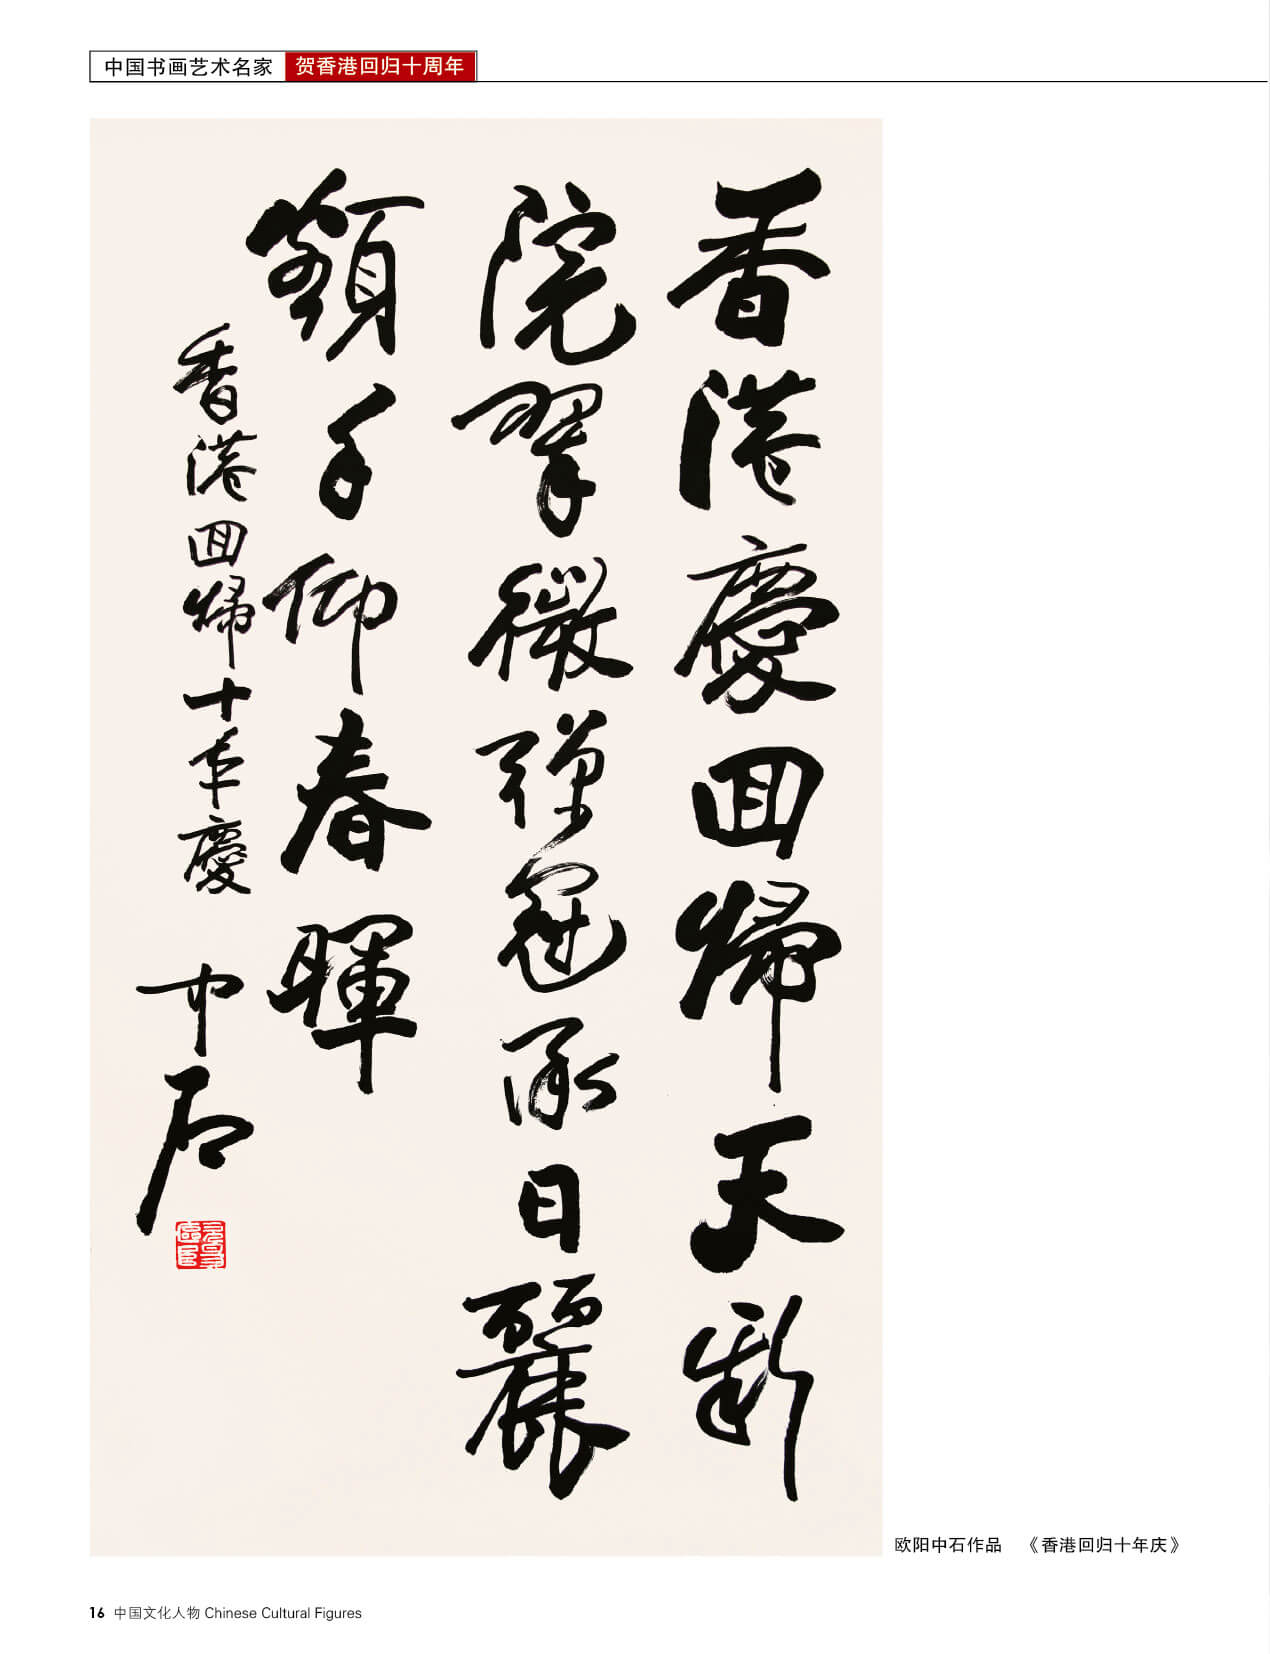 中国书画艺术名家 贺香港回归十周年
香港慶回歸天新
院翠微彈冠承日麗
額手仰春暉
香港回歸十年慶 中石
欧阳中石作品 《香港回归十年庆》
16 中国文化人物 Chinese Cultural Figures